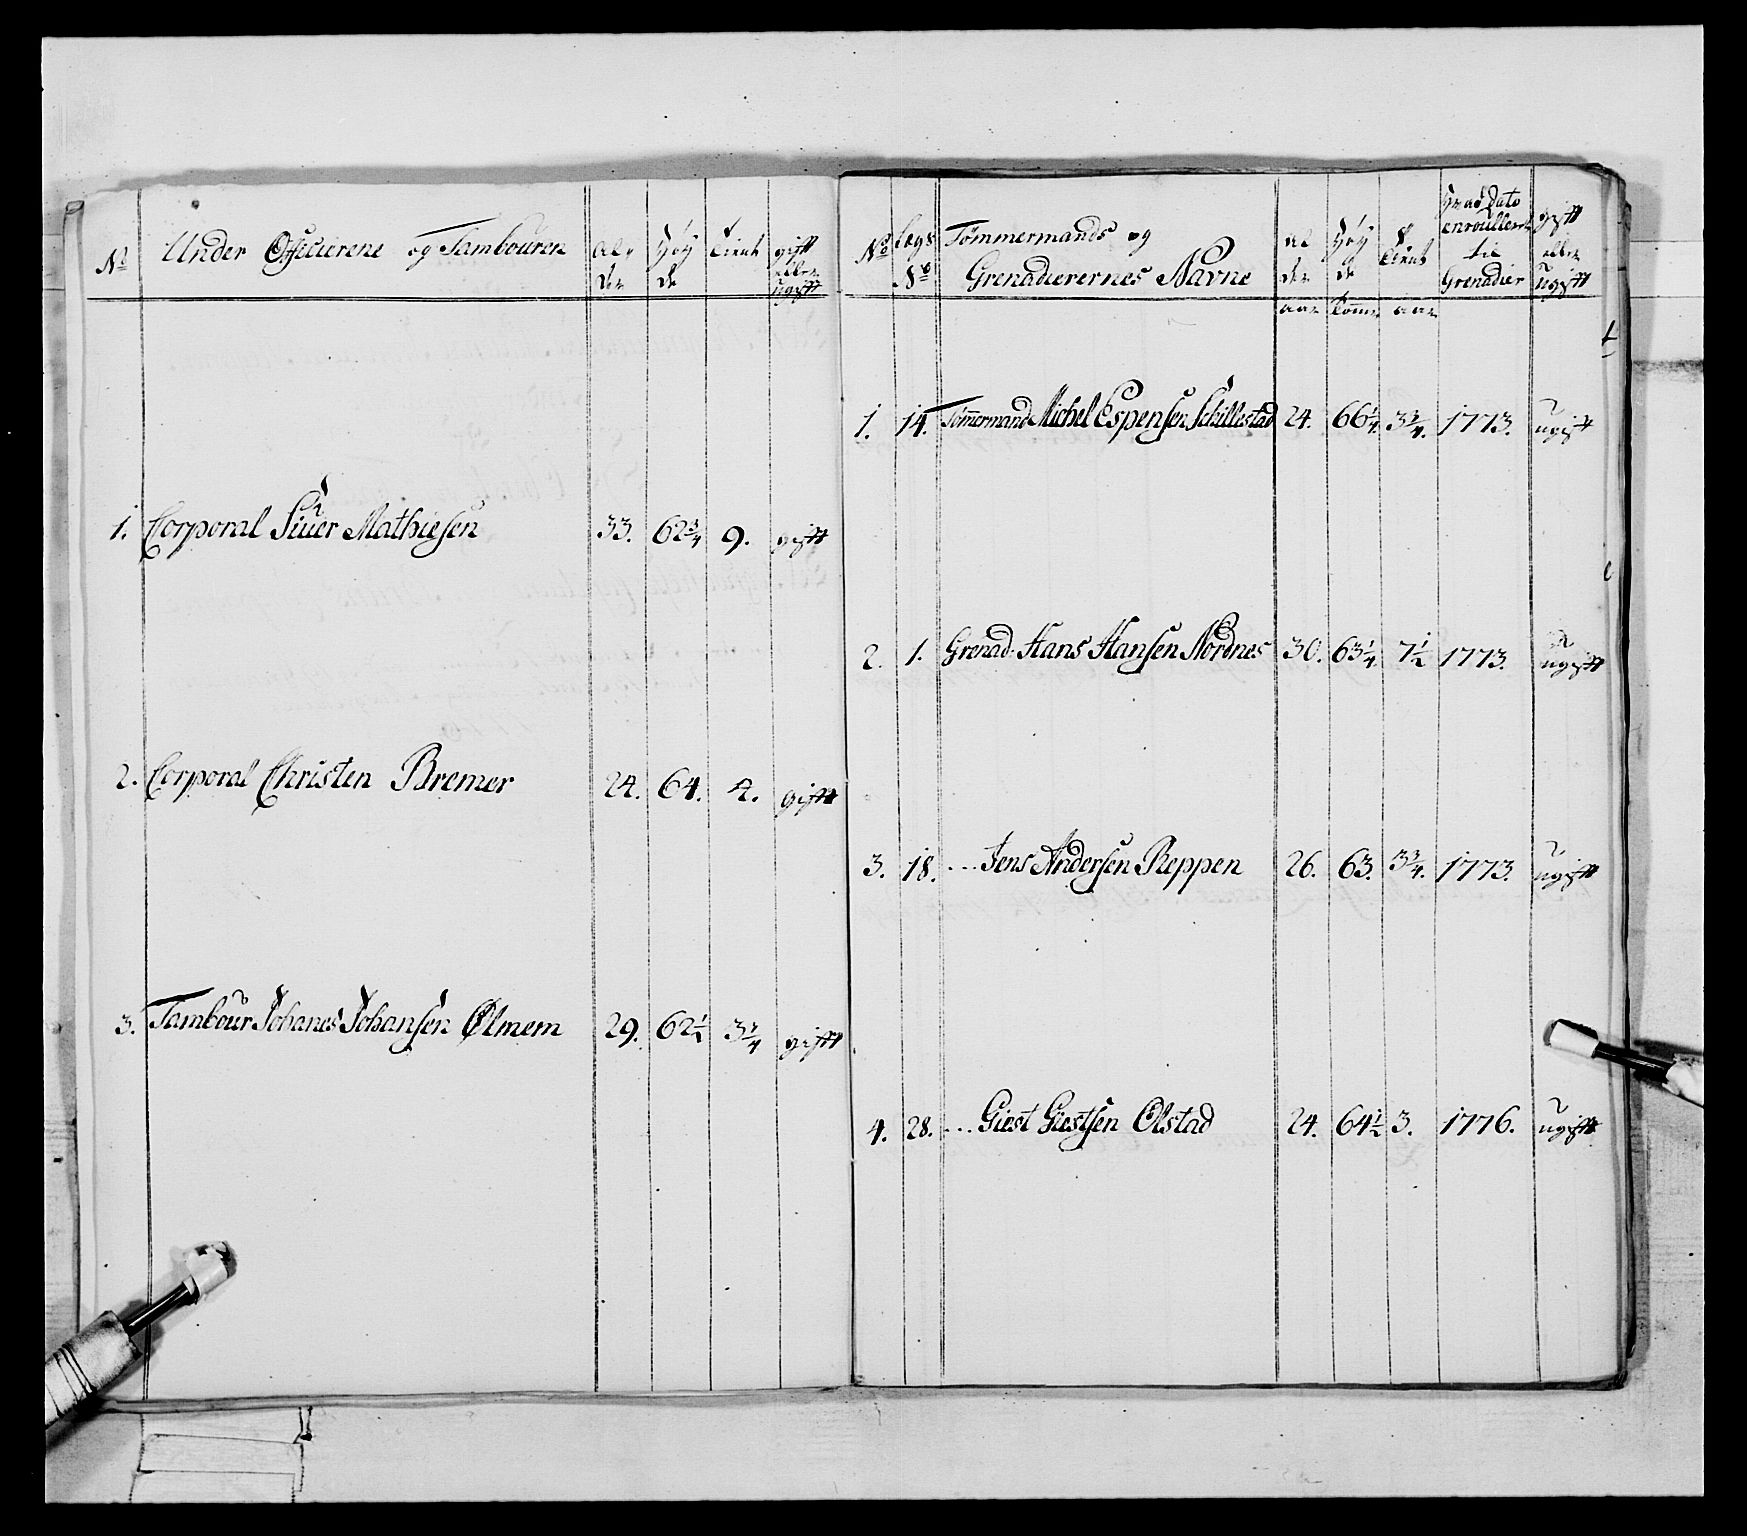 No Under Officierene og Tambouren Al, der Høy de Tient gift eller ugift
1. Corporal Siuer Mathiesen 33. 62 3/4 9. gift
2. Corporal Christen Bremer 24. 64. 4. gift
3. Tambour Johanes Johansen Ølmem 29. 62 1/2 3 3/4 gift
No Lægs No Tømmermands og Grenadierernes Navne Al der Høy de Tient Hvad Dato enroullert til Grenadier gift eller ugift
aar Tomme aar
1. 14. Tømmermand Michel Espensen Schillestad 24. 66 1/4. 3 3/4. 1773. ugift
2. 1. Grenad: Hans Hansen Nordnes 30. 63 1/4 7 1/2 1773. ugift
3. 18. ... Jens Andersen Reppen 26. 63. 3 3/4. 1773. ugift
4. 28. ... Giest Giestsen Olstad 24. 64 1/2 3. 1776. ugift